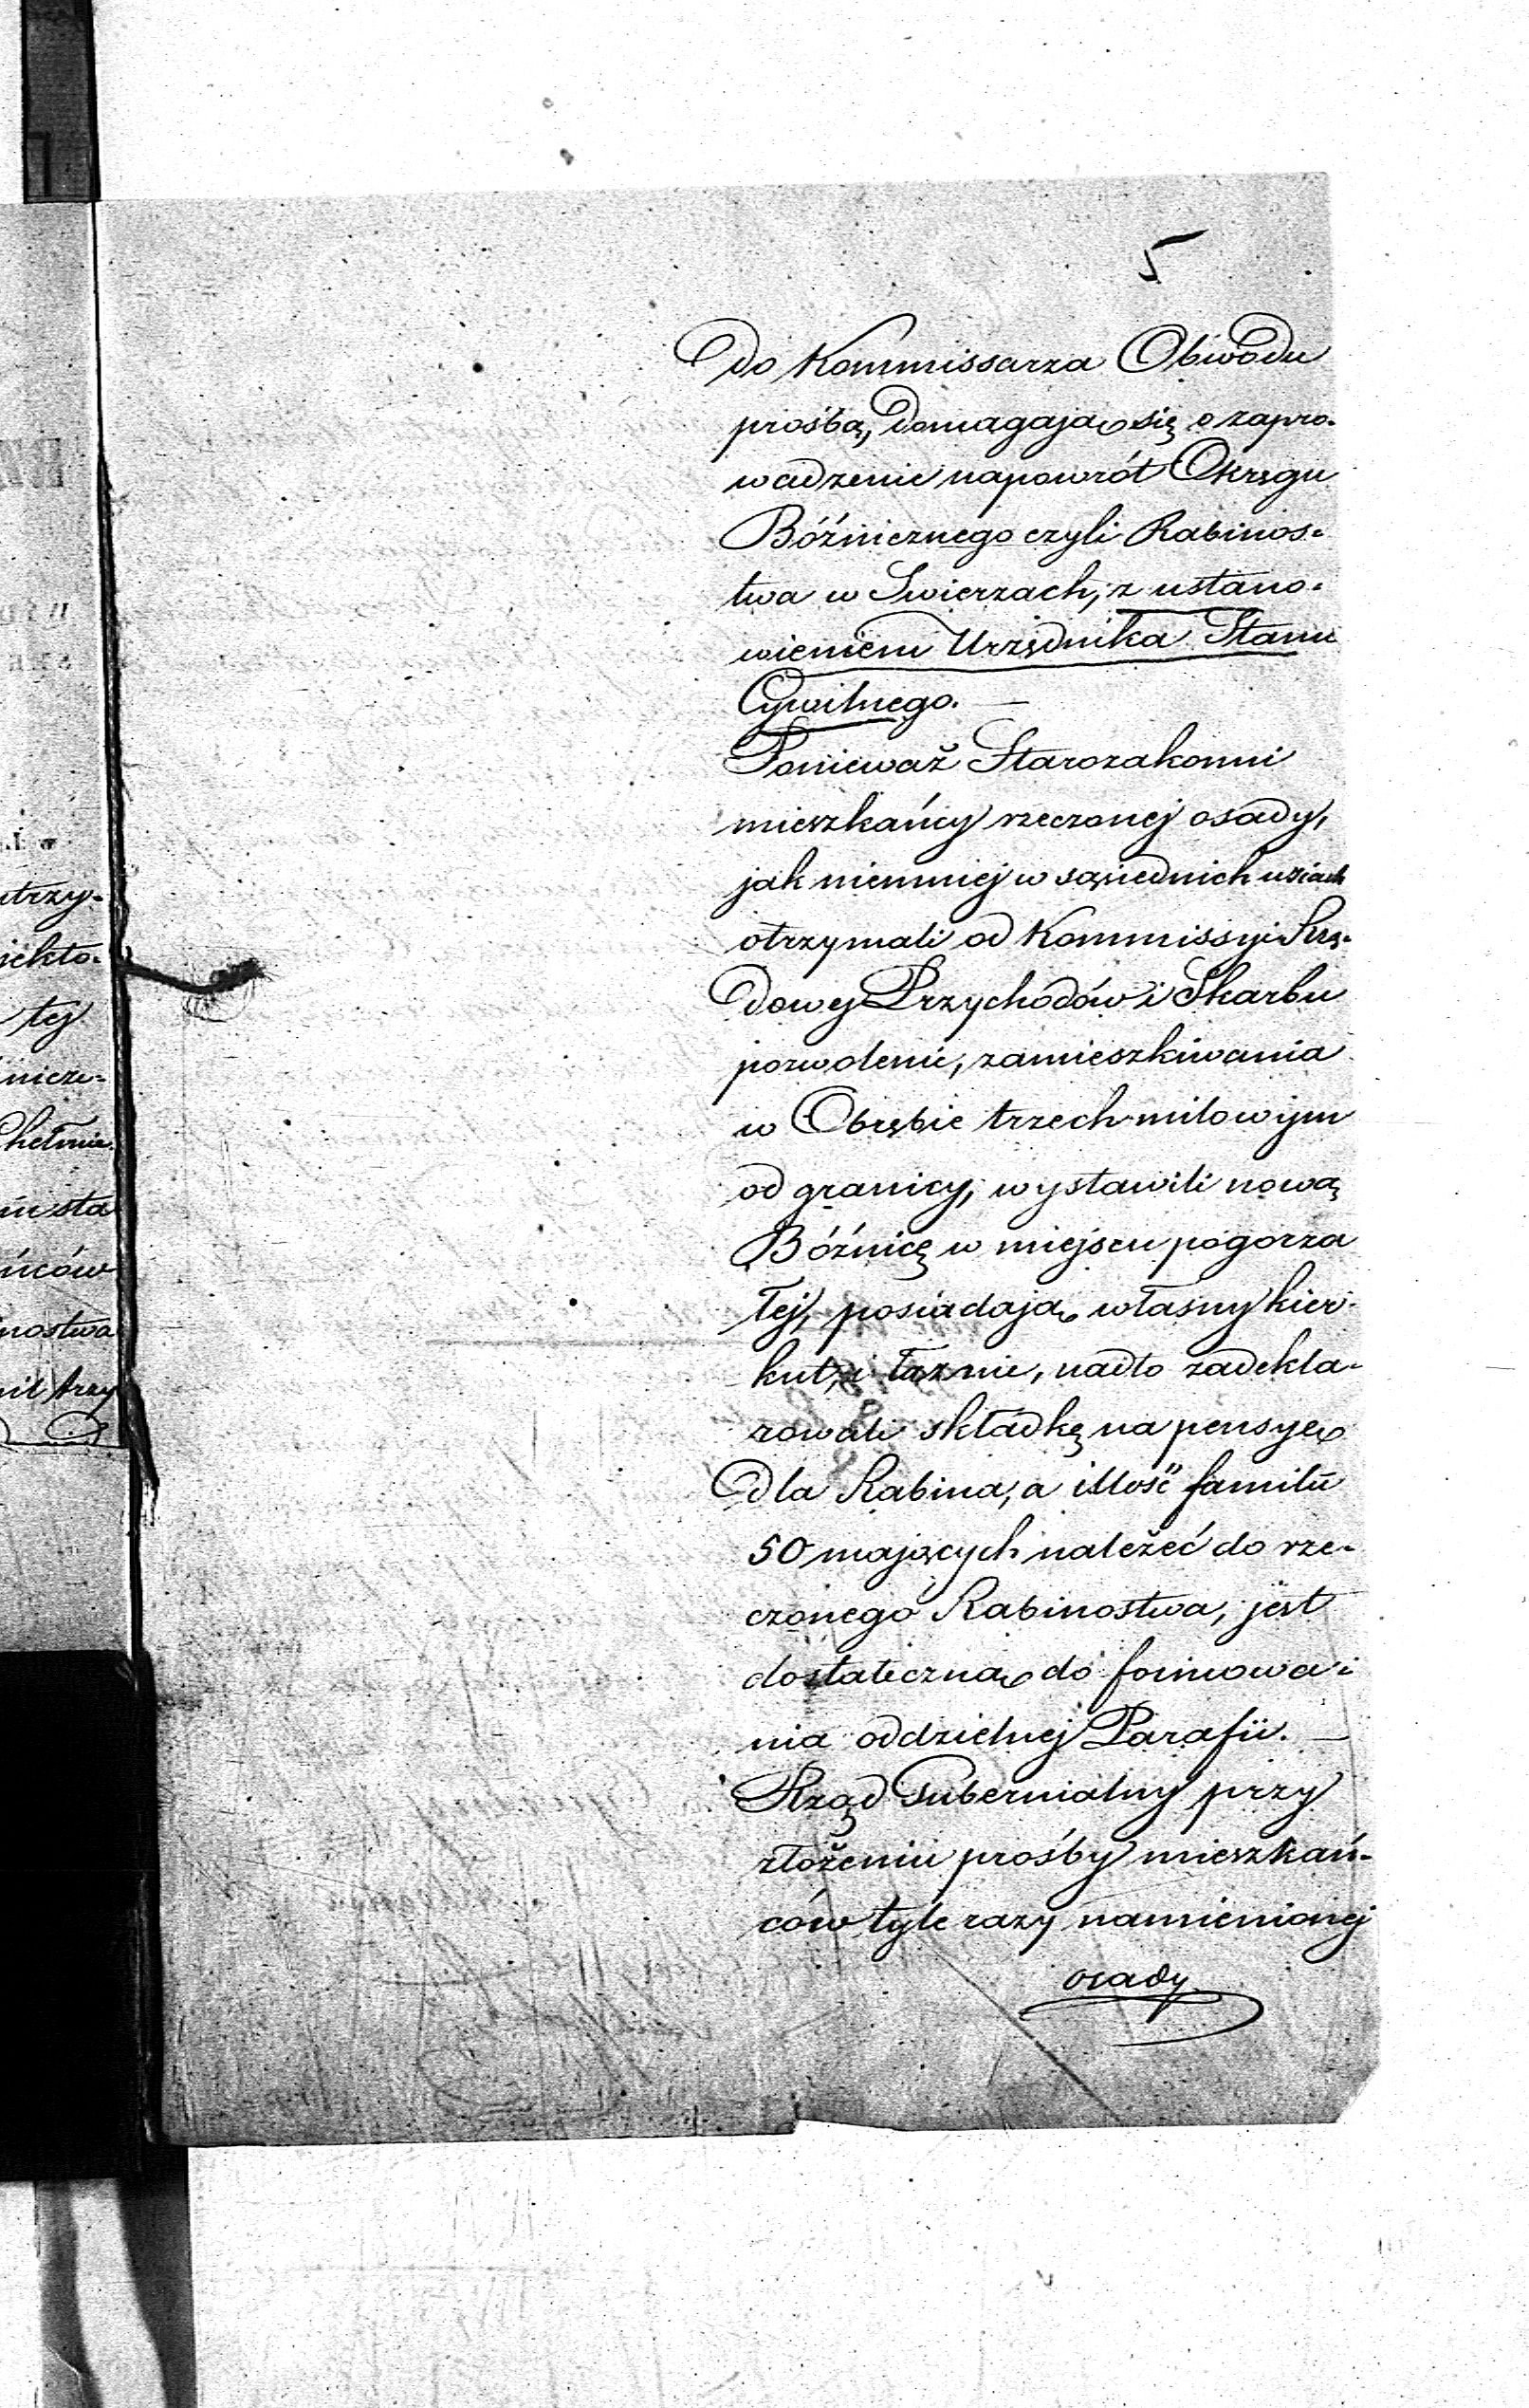 5
do Kommissarza Obwodu
prośbą, domagając się o zapro-
wadzenie napowrót Okręgu
Bóżnicznego czyli Rabinos-
twa w Swierzach, z ustano-
wieniem Urzędnika Stanu
Cywilnego. —
Ponieważ Starozakonni
mieszkańcy rzeczonej osady,
jak niemniej w sąsiednich wsiach
otrzymali od Kommissyi Rzą-
dowej Przychodów i Skarbu
pozwolenie, zamieszkiwania
w Obrębie trzech milowym
od granicy, wystawili nową
Bóżnicę w miejscu pogorza
łej, posiadają własny kier-
kut, i łaznie, nadto zadekla-
rowali składkę na pensye
dla Rabina, a illość familii
50 mających należeć do rze-
czonego Rabinostwa, jest
dostateczna do formowa-
nia oddzielnej Parafii. —
Rząd Gubernialny przy
złożeniu prośby mieszkań-
ców tyle razy namienionej
osady
trzy-
iekto-
tej
nicze-
Chełmie
sta
ńców
nostwa
mil trzy